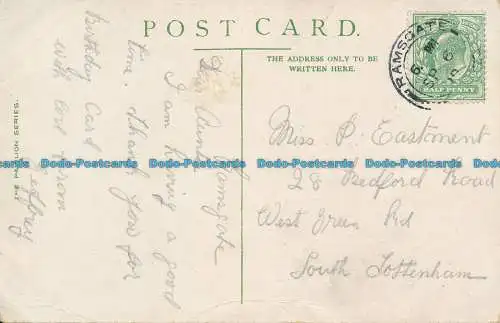 POST CARD.
THE ADDRESS ONLY TO BE
WRITTEN HERE.
RAMSGATE
HALF PENNY
THE PAVILION SERIES.
Ramsgate
Dear Aunt
I am having a good
time. Thank you for
Birthday Card
with love from
Miss P. Eastment
28 Bedford Road
West Green Rd
South Tottenham
Dodo-Postcards Dodo-Postcards Dodo-Postcards Dodo-Postcards Dodo-Postcards Dodo-Postcards